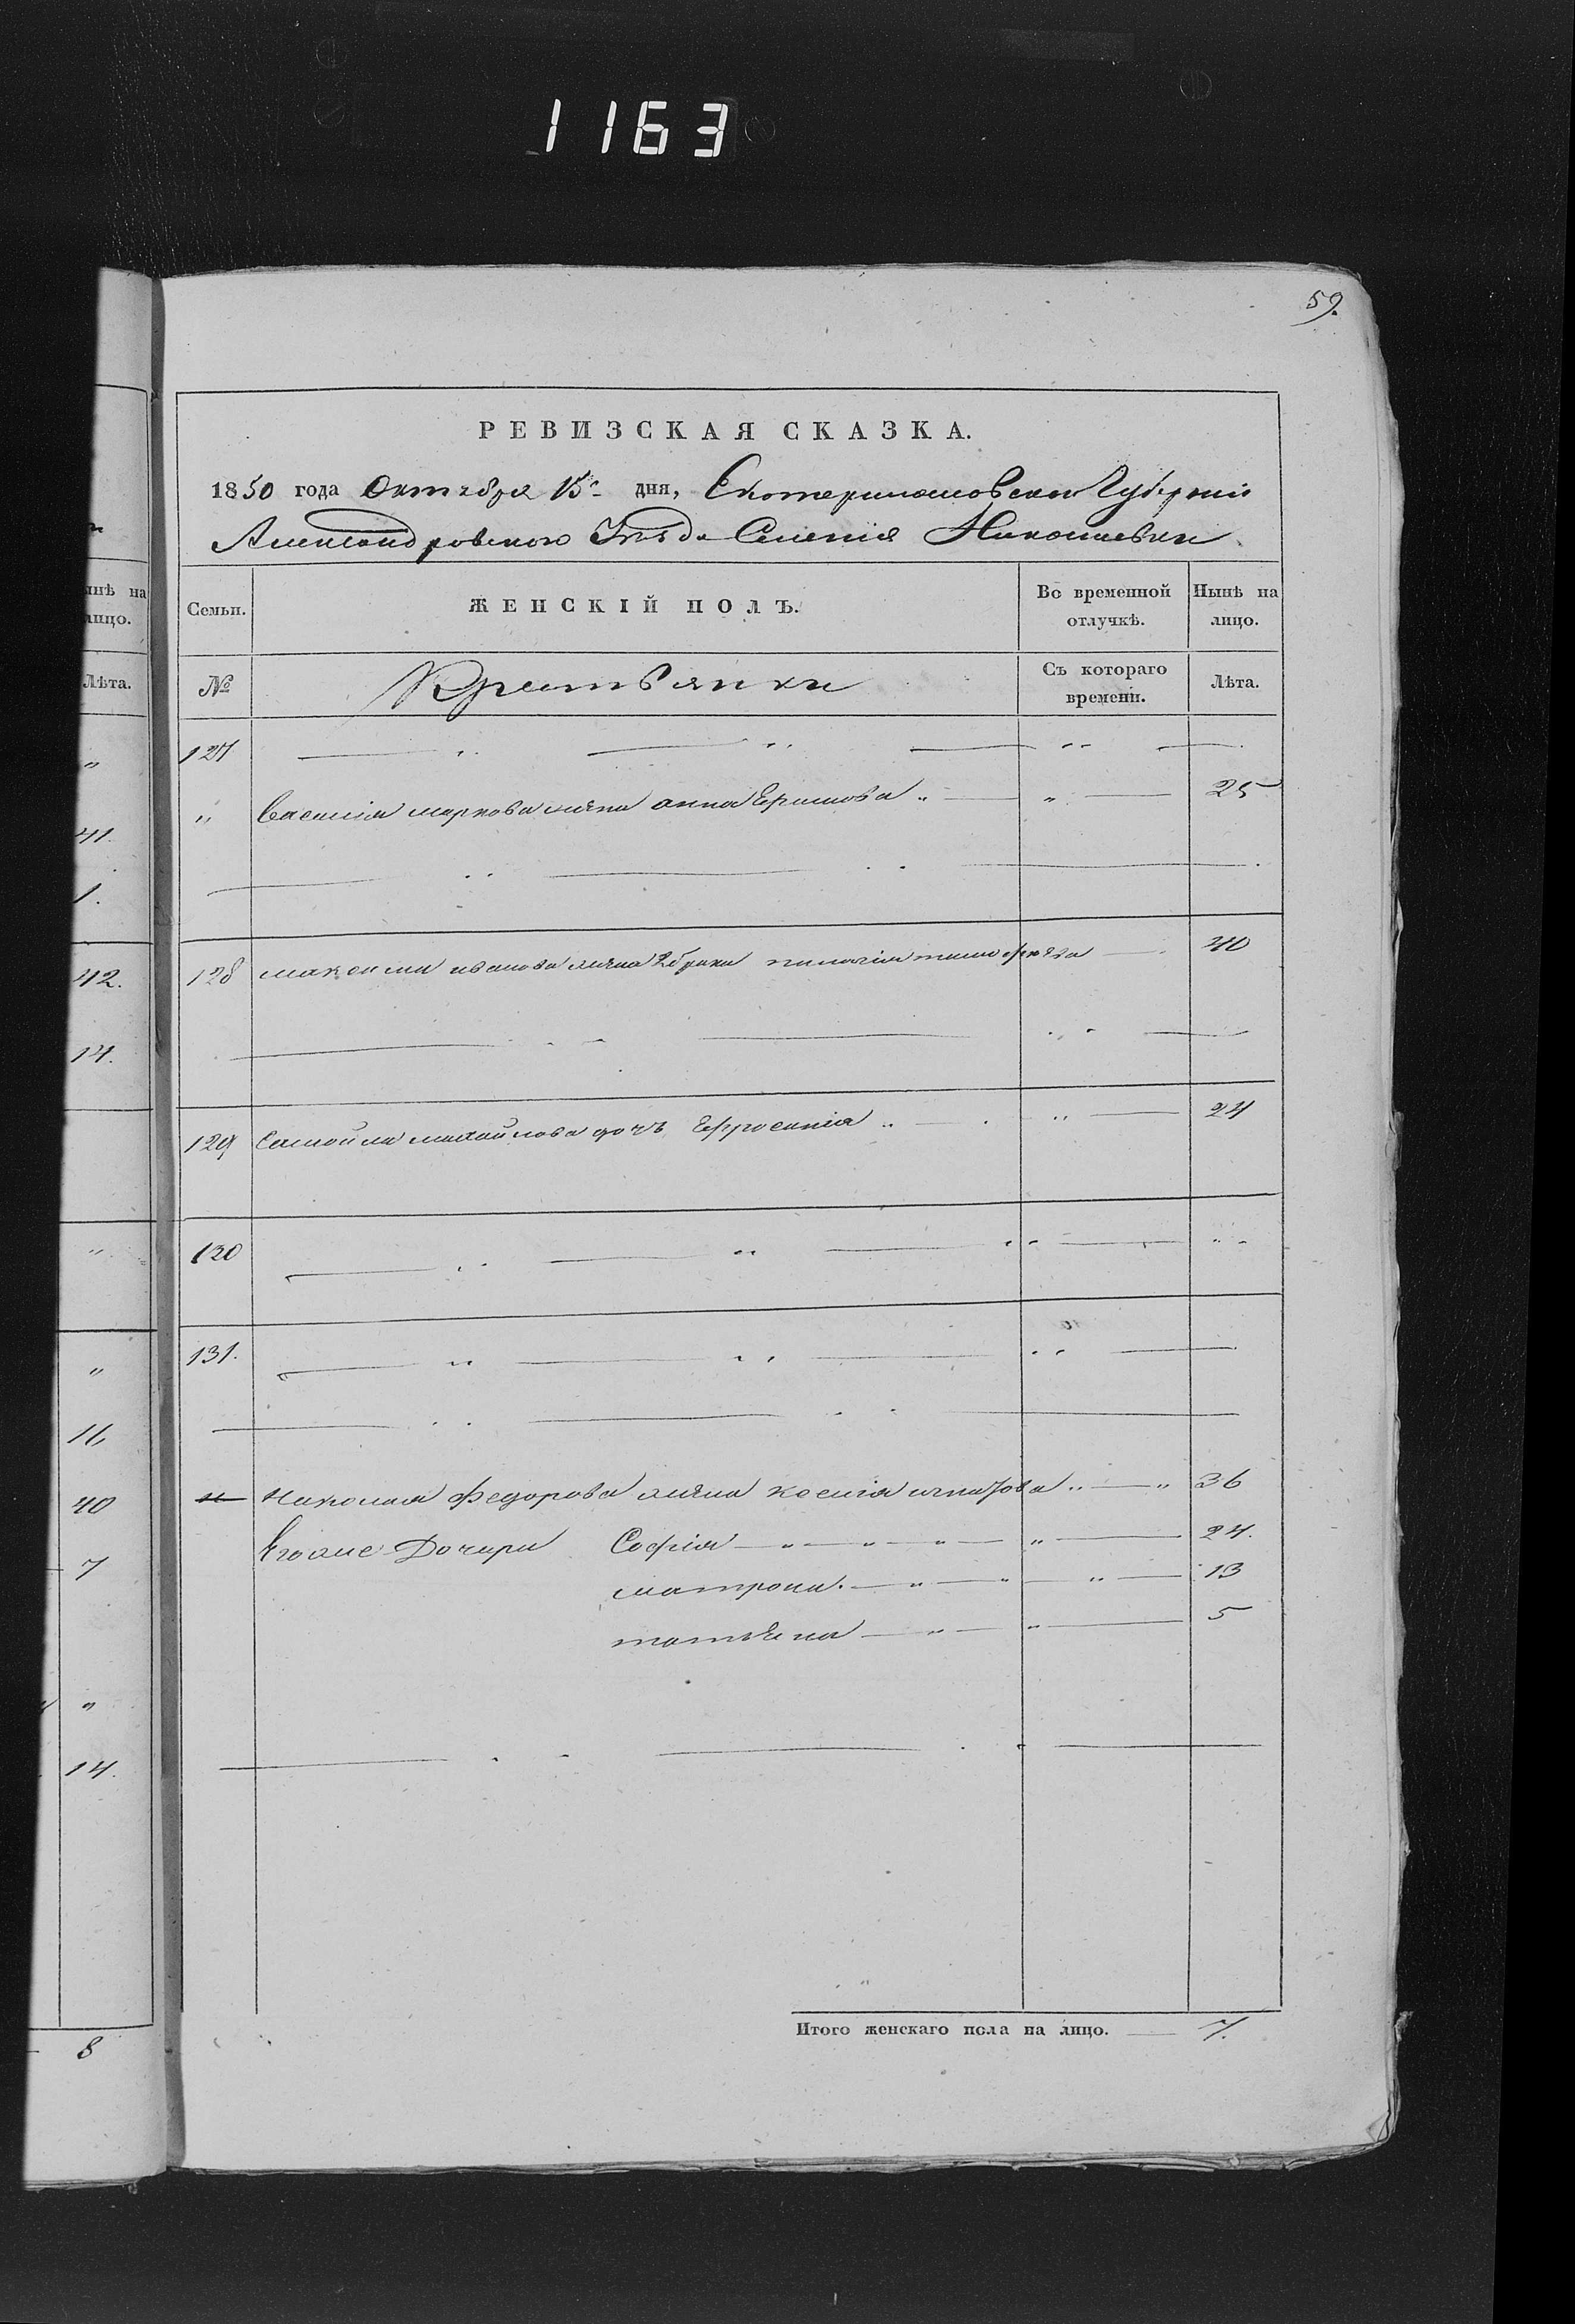 1163
59.
РЕВИЗСКАЯ СКАЗКА.
1850 года Октября 15с дня, Екатеринославской Губерніи
Александровского Уѣзда Селенія Николаевки
инѣ на
лицо.
Семьи.
ЖЕНСКІЙ ПОЛЪ.
Во временной
отлучкѣ.
Нынѣ на
лицо.
Лѣта.
№
Крестьянки
Съ котораго
времени.
Лѣта.
127
" Василія маркова жена анна Ефимова " — " — 25
41.
1.
42.
128 максима иванова жена 2 брака пилагія тимофеева — 40
14.
129 Самойла михайлова дочь Ефросинія " — " — 24
130
131.
11
40
7
" николая федорова жена ксенія игнатова " — " 36
Егоже Дочери Софія — " — " — " — " — 24.
матрона. — " — " — " — 13
татьяна — " — " — 5
14.
Итого женскаго пола на лицо. — 7.
8